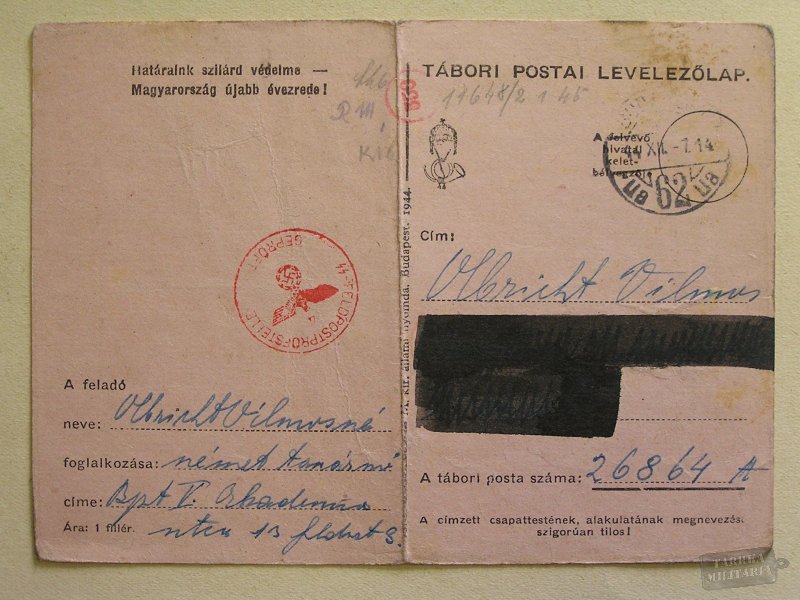 Határaink szilárd védelme —
Magyarország újabb évezrede!
TÁBORI POSTAI LEVELEZŐLAP.
17648/2 1 45
A felvevő
hivatal
kelet-
bélyegzője
XII. -7. 14
62
44
M. kir. állami nyomda, Budapest. 1944.
SS-FELDPOSTPRÜFSTELLE
GEPRÜFT
Cím:
Olbricht Vilmos
A feladó
neve: Olbricht Vilmosné
foglalkozása: német tanárnő
címe: Bpt V. Akadémia
Ára: 1 fillér. utca 13 fldszt 8.
A tábori posta száma: 26864 A
A címzett csapattestének, alakulatának megnevezése
szigorúan tilos!
TARTEX
MILITARIA